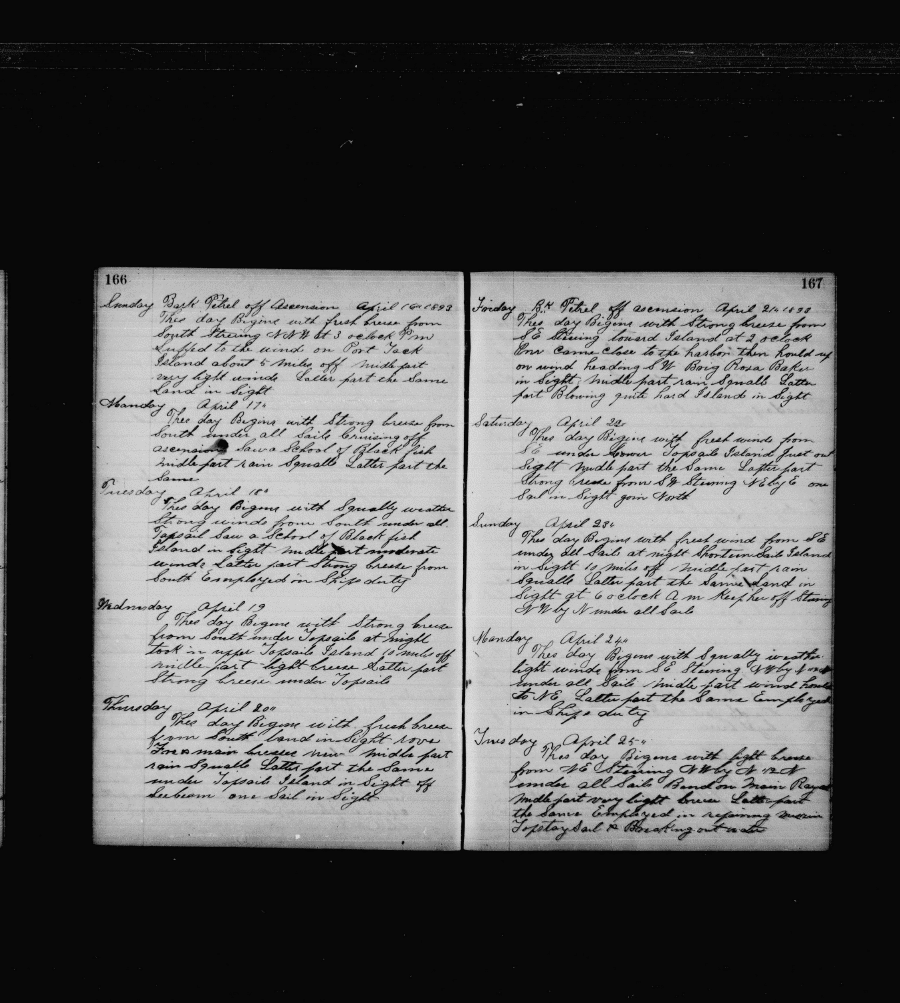 166
Sunday Bark Petrel off Ascension April 16th 1893
Thes day Begins with fresh breese from
South Steering N N W at 3 oclock Pm
Luffed to the wind on Port Tack
Island about 5 miles off midle part
very light winds Latter part the Same
Land in Sight
Monday April 17"
Thes day Begins with Strong breese from
South under all Sails Cruising off
ascension Saw a School of Black fish
midle part rain Squalls Latter part the
Same
Tuesday April 18"
Thes day Begins with Squally weather
Strong winds from South under all
Topsail Saw a School of Black fish
Island in Sight midle part moderate
winds Latter part Strong breese from
South Eemployed in Ships duty
Wednesday April 19
Thes day Begins with Strong breese
from South under Topsails at night
took in upper Topsails Island 10 miles off
midle part light breese Latter part
Strong breese under Topsails
Thursday April 20"
Thes day Begins with fresh breese
from South land in Sight rove
Fore & main breses new midle part
rain Squalls Latter part the Same
under Topsails Island in Sight off
Leebeam one Sail in Sight
167
Friday Bk Petrel off ascension April 21" 1893
Thes day Bigins with Strong breese from
S E Stewing toward Island at 2 oclock
Pm Came close to the harbor then hauld up
on wind heading S W Brig Rosa Baker
in Sight midle part rain Squalls Latter
part Blowing quite hard Island in Sight
Saturday April 22
Thes day Begins with fresh winds from
S E under Lower Topsails Island Just out
Sight midle part the Same Latter part
Strong breese from S W Stewing N E by E one
Sail in Sight goin North
Sunday April 23"
Thes day Begins with fresh wind from S E
under all Sails at night Shorten Sail Island
in Sight 10 miles off midle part rain
Squalls Latter part the Same Land in
Sight at 6 oclock A m Keep her off Stewing
N W by N under all Sails
Monday April 24"
Thes day Begins with Squally weather
light winds from S E Stewing N W by N
under all Sails midle part wind
at N E Latter part the Same Employed
in Ships duty
Tuesday April 25"
Thes day Bigins with light breese
from N E Stewing N W by N 1/2 N
under all Sails Bend on Main Royal
midle part very light breese Latter part
the Same Employed in repairing main
Topstay Sail & Breaking out water